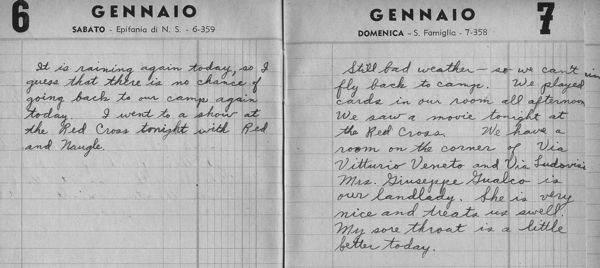 6
GENNAIO
SABATO - Epifania di N. S. - 6-359
It is raining again today, so I
guess that there is no chance of
going back to our camp again
today. I went to a show at
the Red Cross tonight with Red
and Naugle.
GENNAIO
7
DOMENICA - S. Famiglia - 7-358
Still bad weather - so we can't
fly back to camp. We played
cards in our room all afternoon
We saw a movie tonight at
the Red Cross. We have a
room on the corner of Via
Vitturio Veneto and Via Ludovisi
Mrs. Giuseppe Gualco is
our landlady. She is very
nice and treats us swell.
My sore throat is a little
better today.